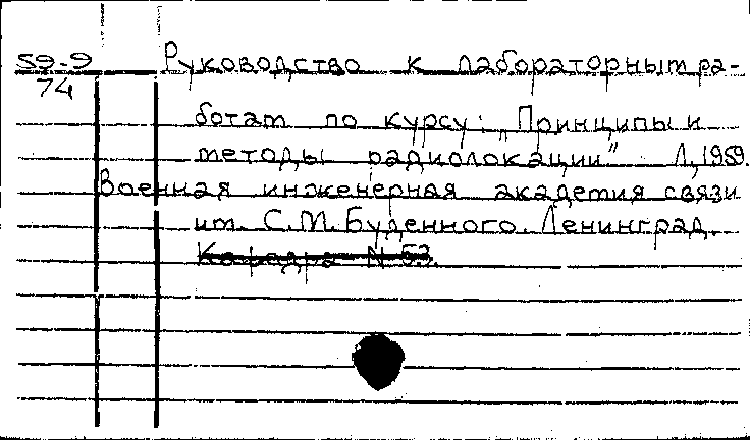 59-9
74
Руководство к лабораторным ра-
ботам по курсу: „Принципы и
методы радиолокации" Л,1959.
Военная инженерная академия связи
им. С.М.Буденного. Ленинград.
Кафедра N 53.